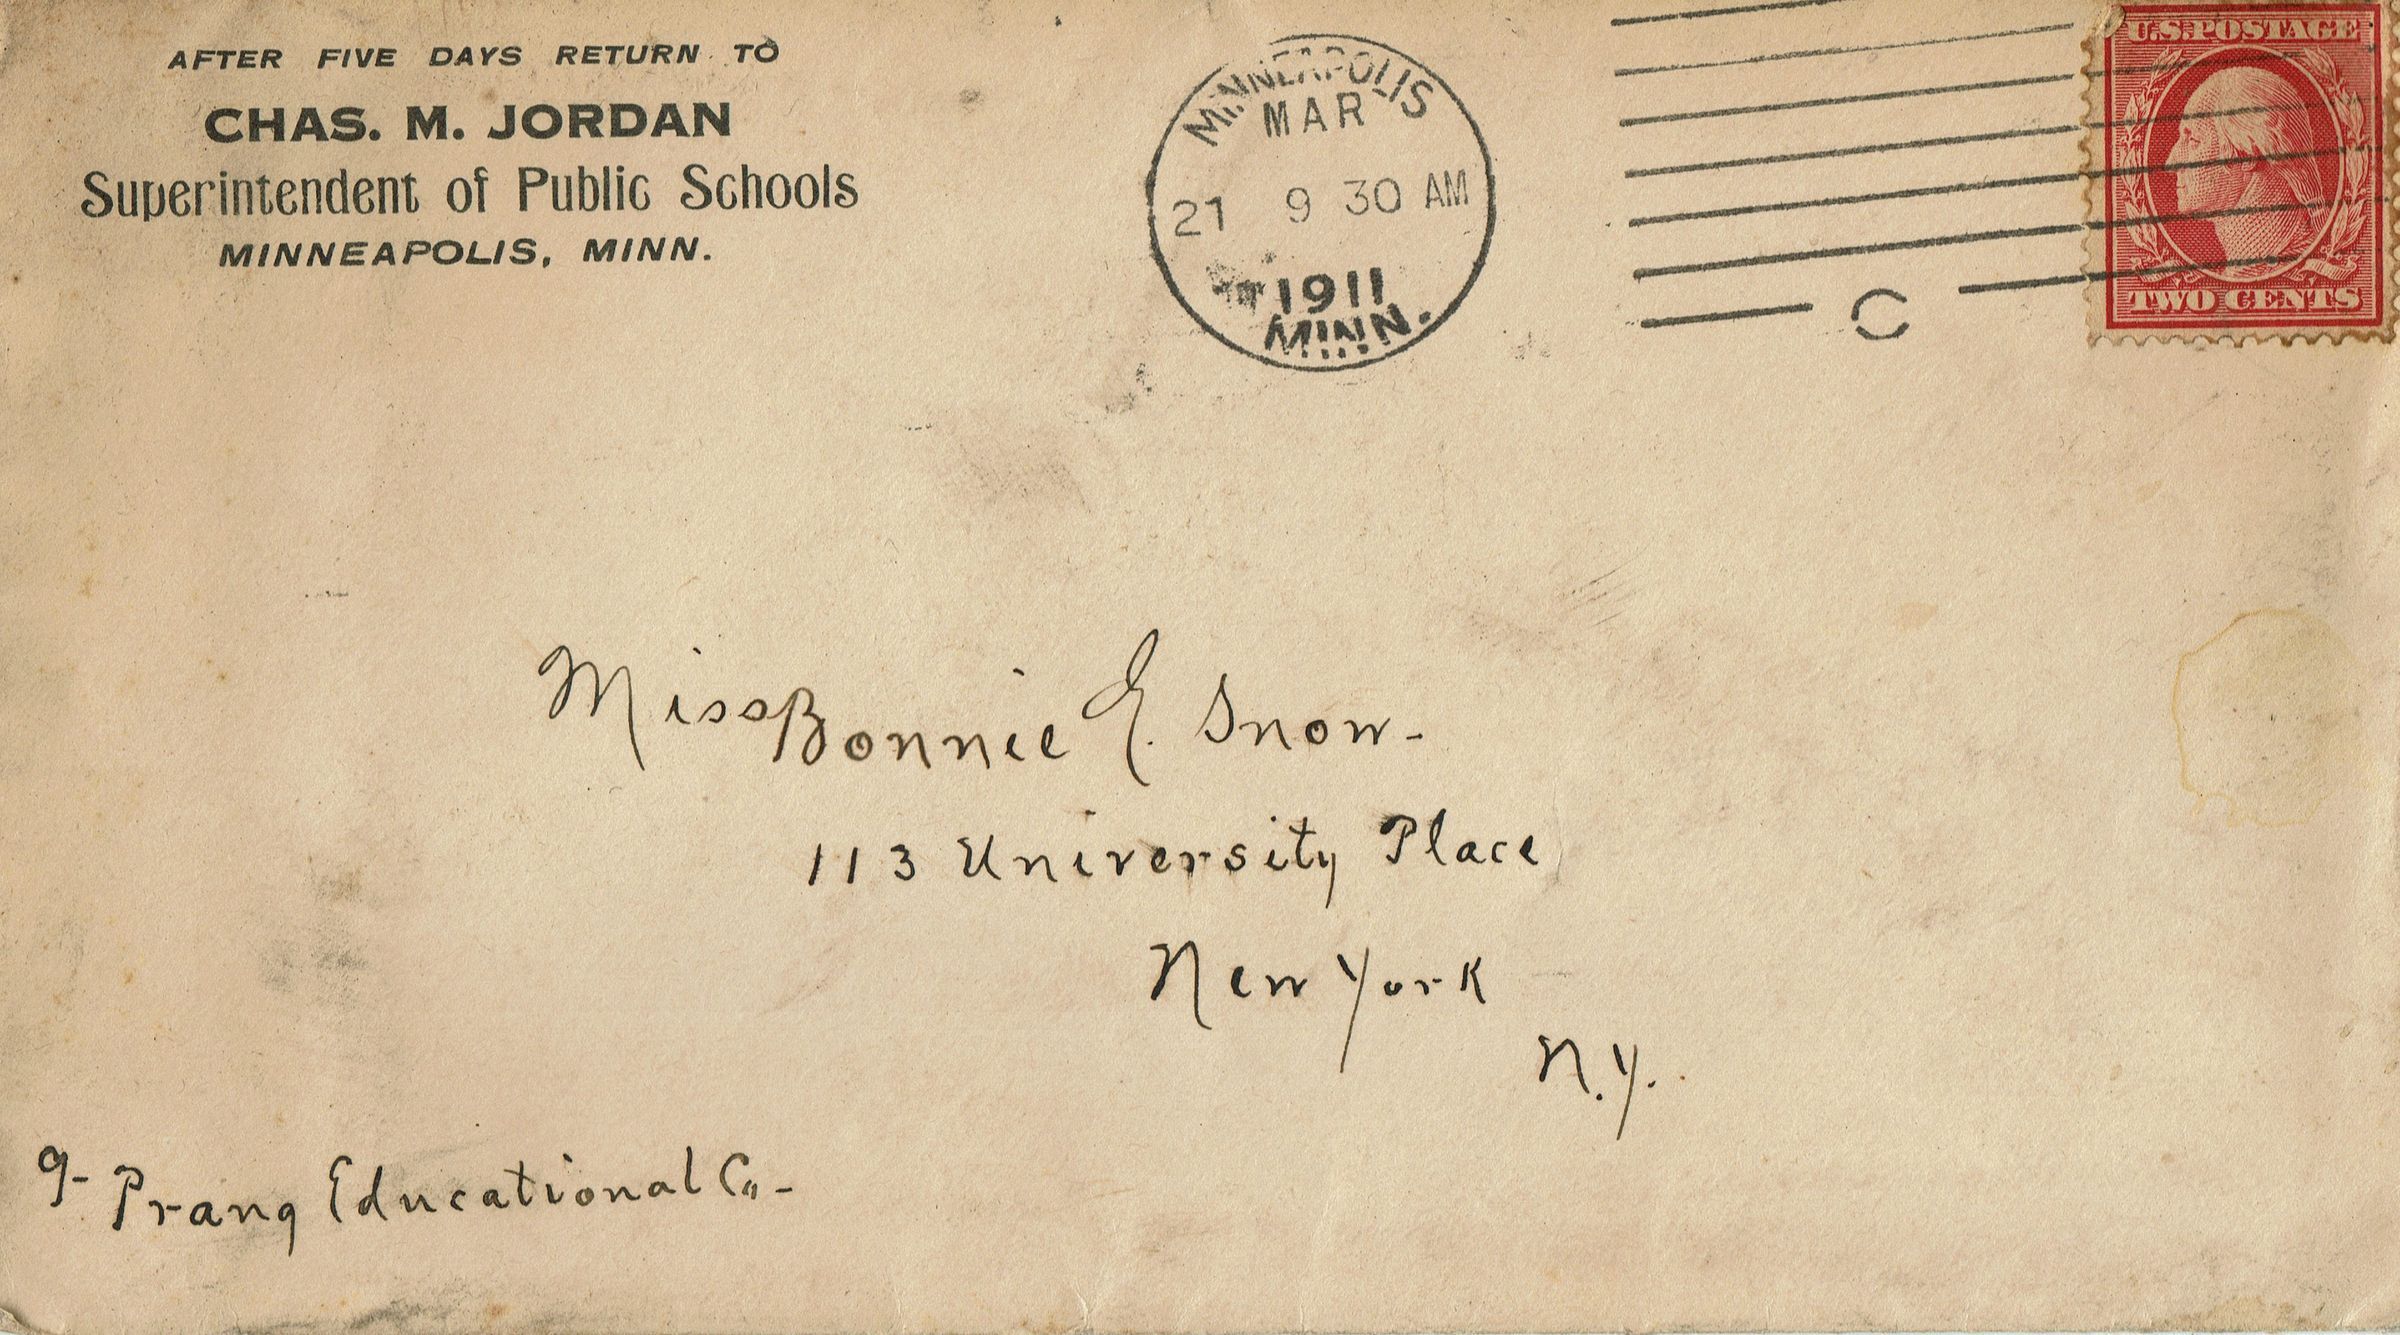 AFTER FIVE DAYS RETURN TO
CHAS. M. JORDAN
Superintendent of Public Schools
MINNEAPOLIS, MINN.
MINNEAPOLIS
MAR
21 9 30 AM
1911
MINN.
C
U.S. POSTAGE
TWO CENTS
Miss Bonnie E. Snow-
113 University Place
New York
N.Y.
Prang Educational Co-